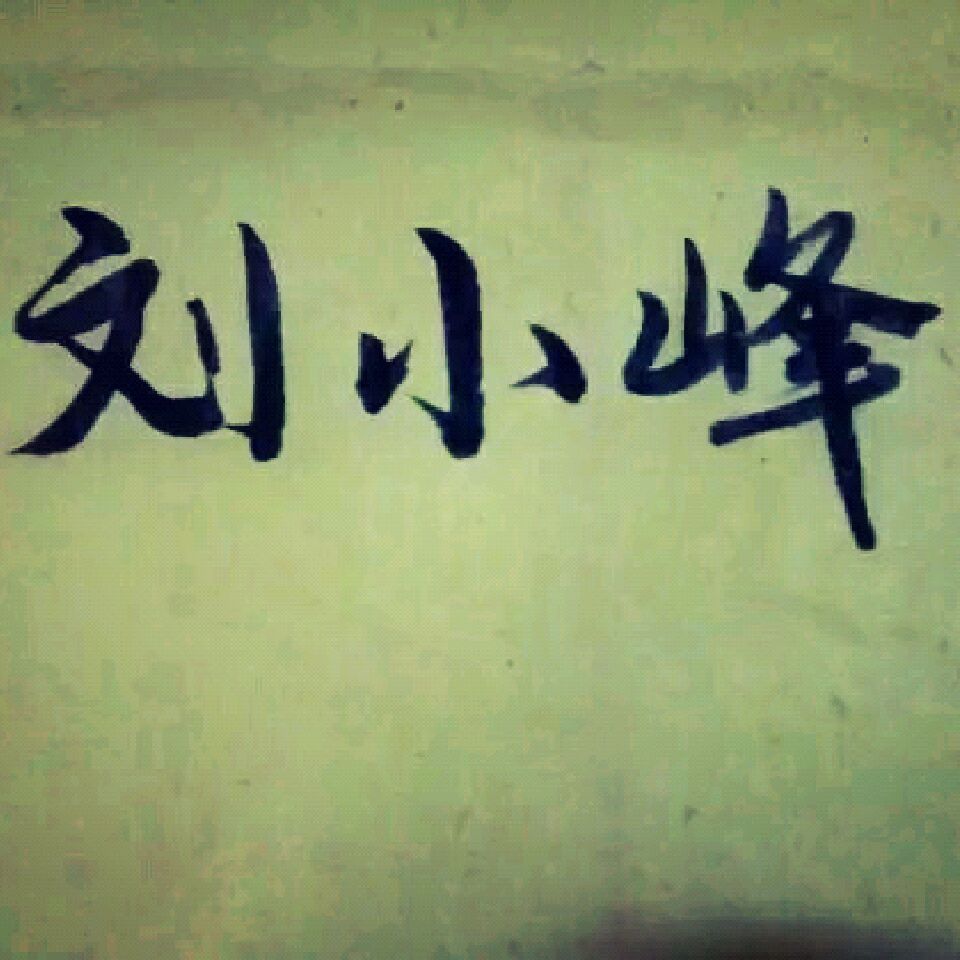 刘小峰